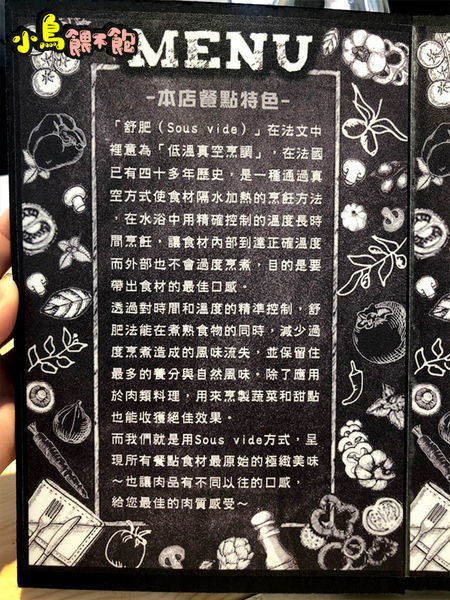 小鳥餵不飽
MENU
-本店餐點特色-
「舒肥(Sous vide)」在法文中
裡意為「低溫真空烹調」,在法國
已有四十多年歷史,是一種通過真
空方式使食材隔水加熱的烹飪方法
,在水浴中用精確控制的溫度長時
間烹飪,讓食材內部到達正確溫度
而外部也不會過度烹煮,目的是要
帶出食材的最佳口感。
透過對時間和溫度的精準控制,舒
肥法能在煮熟食物的同時,減少過
度烹煮造成的風味流失,並保留住
最多的養分與自然風味。除了應用
於肉類料理,用來烹製蔬菜和甜點
也能收獲絕佳效果。
而我們就是用Sous vide方式,呈
現所有餐點食材最原始的極緻美味
～也讓肉品有不同以往的口感,
給您最佳的肉質感受～